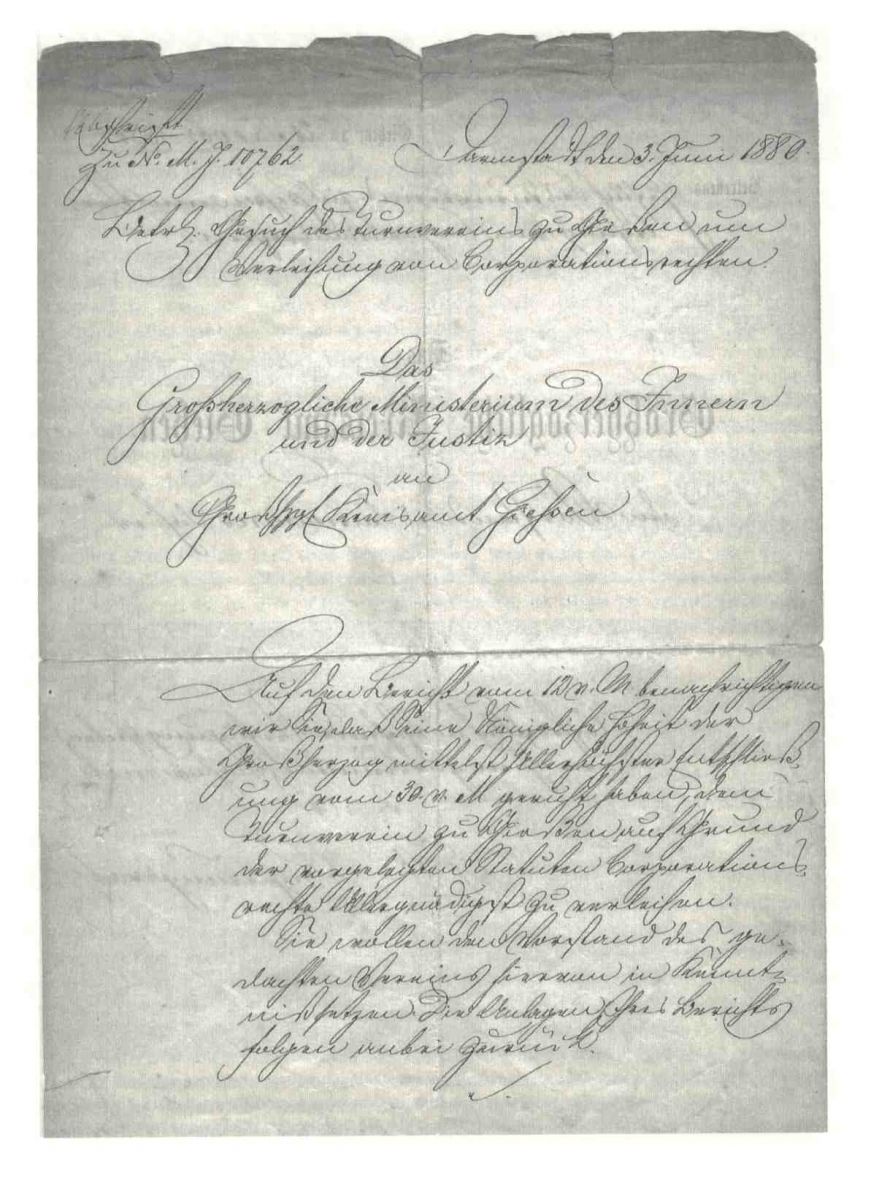 Abschrift
Zu No. M. J. 10762.
Darmstadt den 3. Juni 1880.
Betr.: Gesuch des Turnvereins zu Gießen um
Verleihung von Corporationsrechten.
Das
Großherzogliche Ministerium des Innern
und der Justiz
an
Großhzgl. Kreisamt Giessen
Auf den Bericht vom 12. v. M. benachrichtigen
wir Sie, daß Seine Königliche Hoheit der
Großherzog mittelst Allerhöchster Entschließ-
ung vom 30. v. M. geruht haben, dem
Turnverein zu Gießen auf Grund
der vorgelegten Statuten Corporations-
rechte Allergnädigst zu verleihen.
Sie wollen den Vorstand des ge-
dachten Vereins hiervon in Kennt-
niß setzen. Die Anlagen Ihres Berichts
folgen anbei zurück.